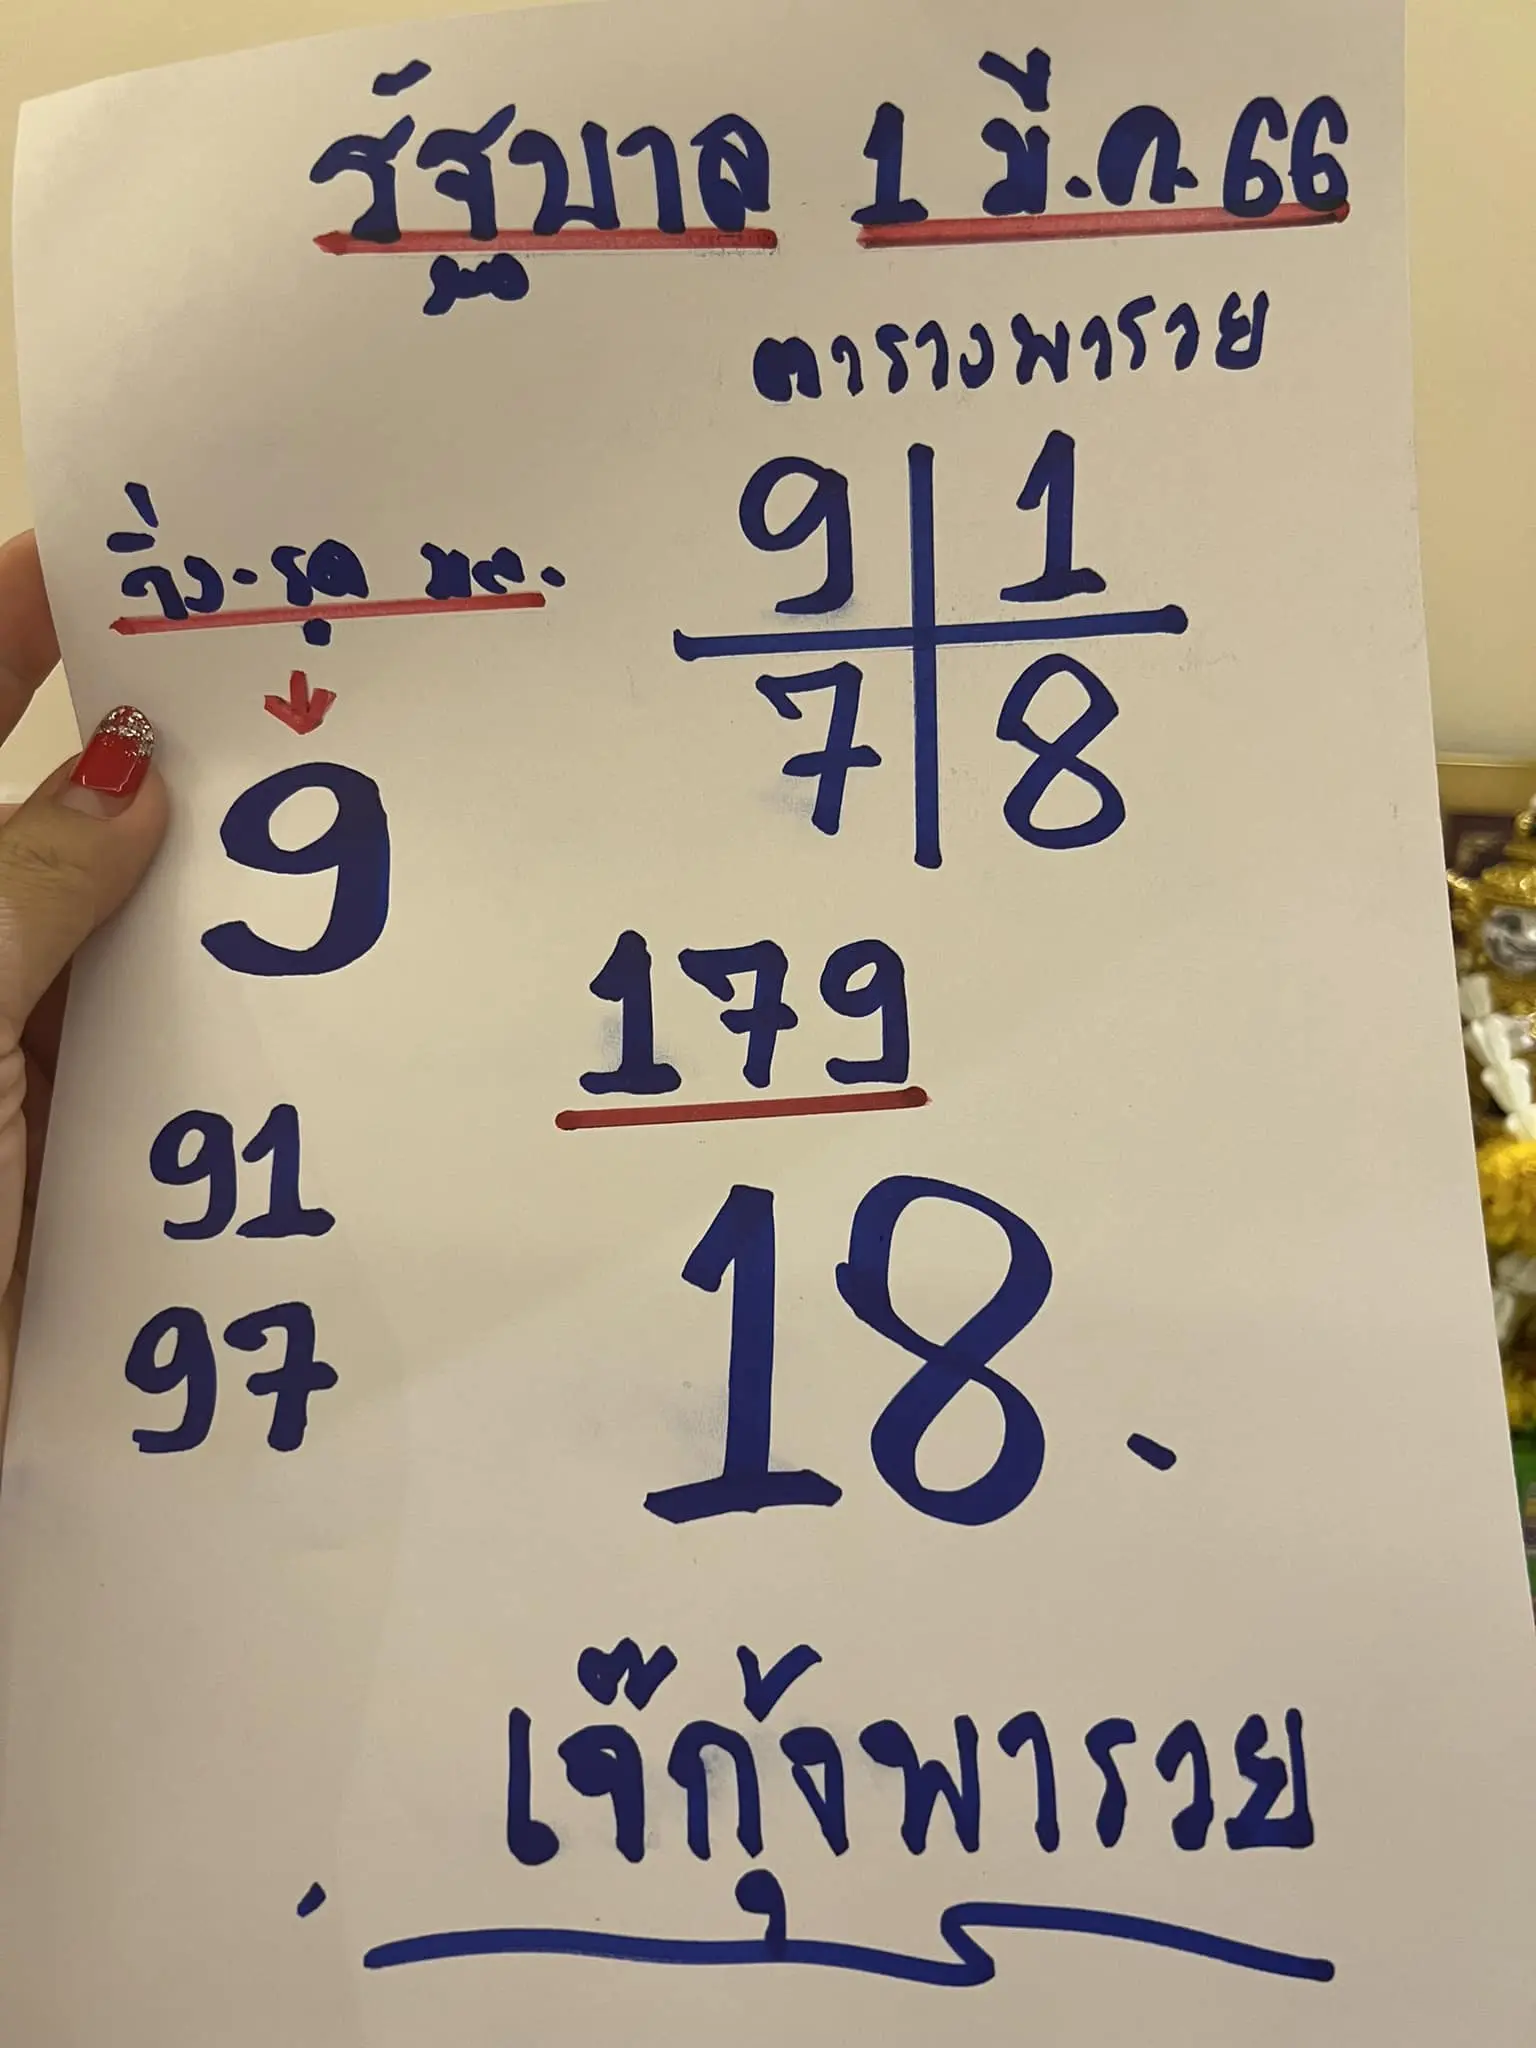 รัฐบาล 1 มี.ค. 66
ตารางพารวย
9 1
7 8
วิ่ง.รูด
9
179
91
97
18.
เจ๊กุ้งพารวย